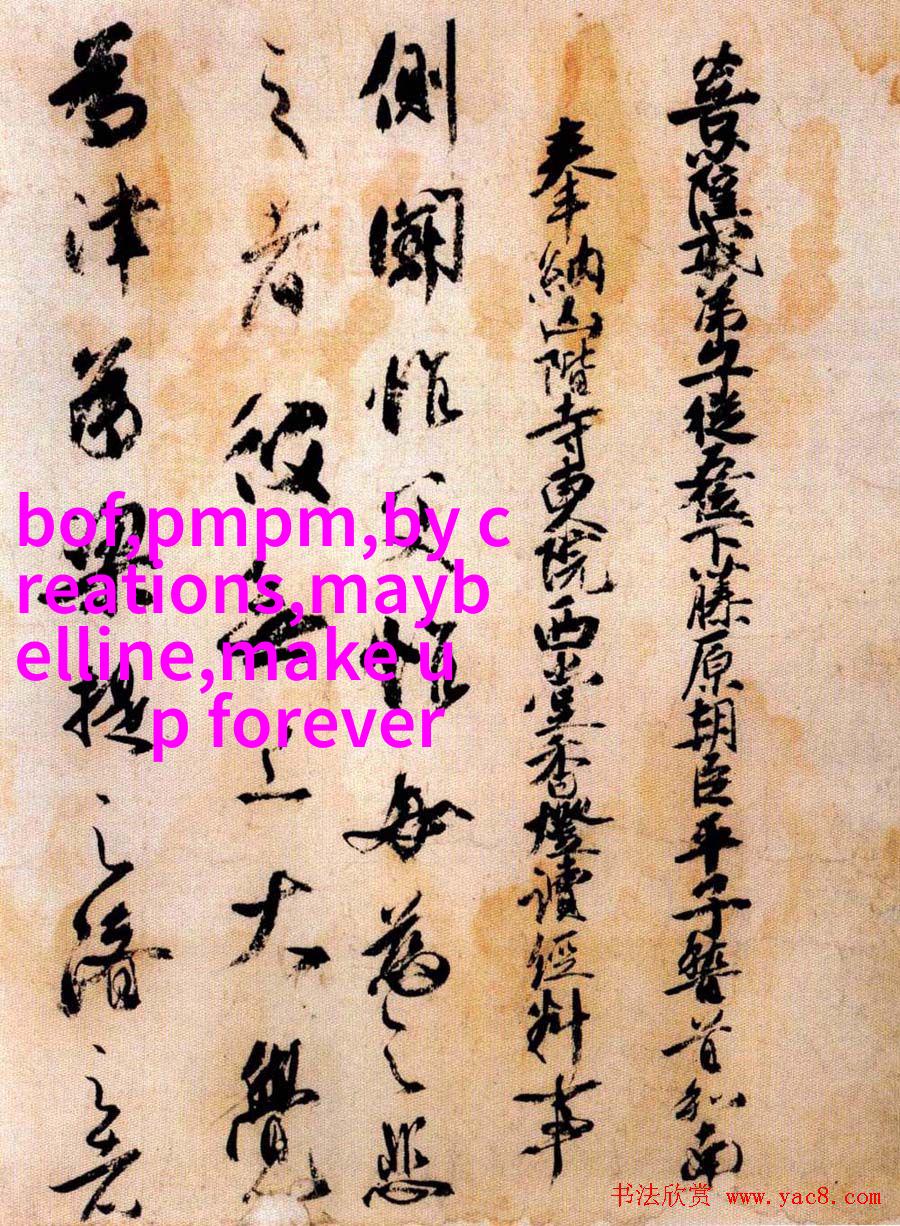 菩薩戒弟子從五位下藤原朝臣平子稽首和南
奉納山階寺東院西堂香燈讀經料事
側聞惟父惟母慈之悲
之者彼無上大覺
為津為梁提之濟之者
bof,pmpm,by c
reations,mayb
elline,make u
p forever
书法欣赏 www.yac8.com